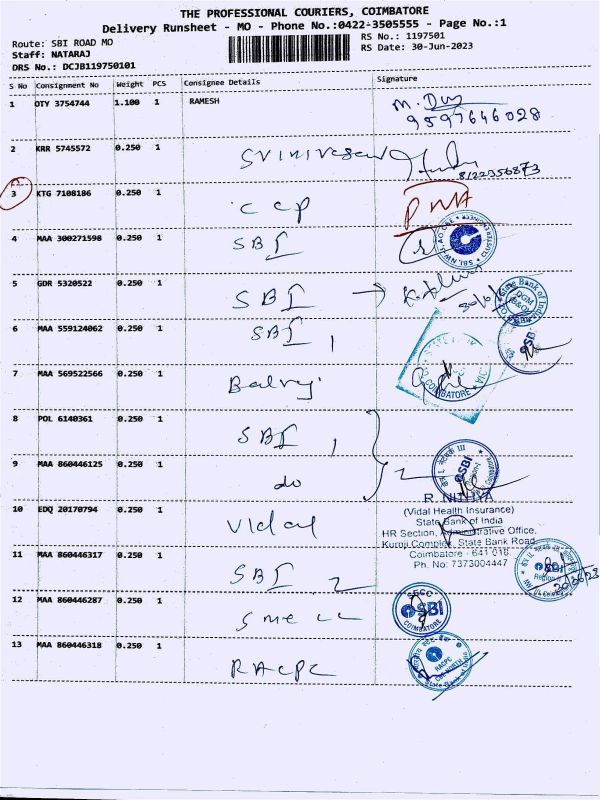 THE PROFESSIONAL COURIERS, COIMBATORE
Delivery Runsheet - MO - Phone No.:0422-3505555 - Page No.:1
Route: SBI ROAD MO
RS No.: 1197501
Staff: NATARAJ
RS Date: 30-Jun-2023
DRS No.: DCJB119750101
S No Consignment No Weight PCS Consignee Details Signature
1 OTY 3754744 1.100 1 RAMESH
9597646028
2 KRR 5745572 0.250 1 Srinivasan
8122356873
3 KTG 7108186 0.250 1 CCP
4 MAA 300271598 0.250 1 SBI
5 GDR 5320522 0.250 1 SBI
6 MAA 559124062 0.250 1 SBI 1
7 MAA 569522566 0.250 1 Balraj
COIMBATORE
8 POL 6140361 0.250 1 SBI 1
9 MAA 860446125 0.250 1 do 2
SBI
R. NITHYA
10 EDQ 20170794 0.250 1 Vidal
(Vidal Health Insurance)
State Bank of India
HR Section, Administrative Office,
Kuruji Complex, State Bank Road,
Coimbatore - 641 018.
Ph. No: 7373004447
11 MAA 860446317 0.250 1 SBI 2
SBI
30/06/23
12 MAA 860446287 0.250 1 SME CC
SBI
COIMBATORE
13 MAA 860446318 0.250 1 RACPC
RACPC